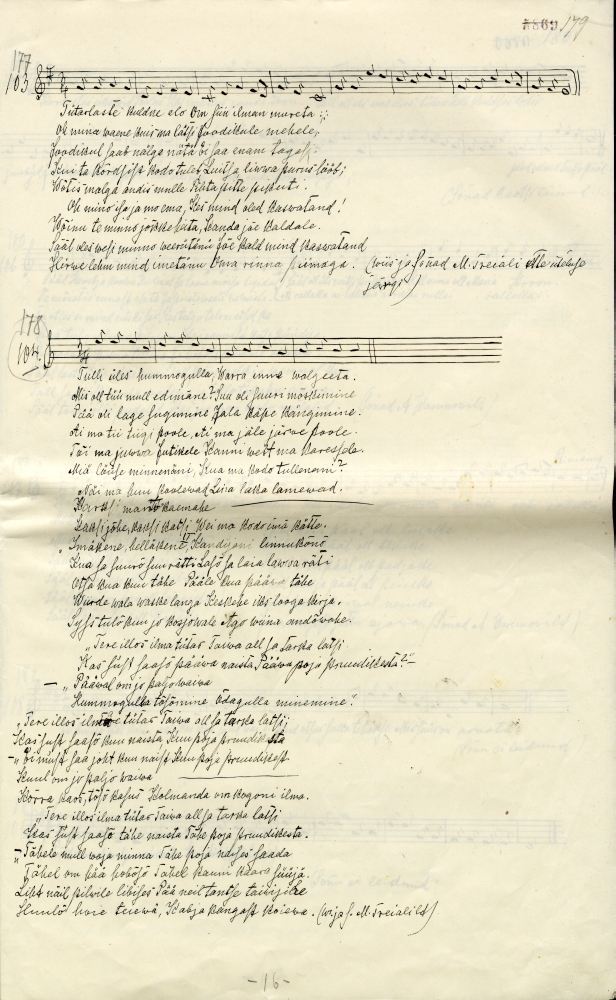 179
177
103
Tütarlaste kuldne elo Om siin ilman mureta :;:
Oh minna waene kuis ma lätsi joodikule mehele,
Joodikul saab nälga nätä Ei saa enam tagasi.
Kui ta kõrdsist kodo tuleb, Luitsa liwwa puruss lööb;
Wõtis malga andis mulle
Oh mino isa ja mo ema, Kes mind oled kaswatand!
Wõinu te minno jõkke heita, Kanda jõe kaldale.
Sääl oles wesi minno weerütänü jõe kald mind kaswatand
Hirwe lehm mind imetänu Oma rinna piimaga. (wiis ja sõnad M. Treiali üteluse
järgi)
178
104.
Tulli üles hummogulla, Warra inne walgeeta.
Mis oll tüü mull edimäne? Suu oli suuri mõskmine
Pää oli lage sugimine Jala käpe kängimine.
Ai ma tii tiigi poole, Ai ma jäle järwe poole.
Tõi ma juwwa
Mis lätse minnenäni, Kua ma kodo tullenani?
Näi ma kuu koolewad Liisa laska lamewad.
kaemahe
Lätsi jõhe, katsi katsi Wei ma kodo imä kätte.
„Imäkene, helläkene, linnukõnõ
Kua sa suurõ suurätti Lasõ sa laia lawwa räti
Otsa kua kuu tähe Pääle kua pääwa tähe
Wiirde wala waske langa Keskehe üts looga kirja.
Syss tulõ kuu jo kosjowale Ago wiina andõwahe.
„Tere illos ilma tütar Taiwa all sa tarka latsi
Kas suss saasõ pääwa naista Pääwa poja pruudikesta?“ –
– „Pääwal om jo paljo waiwa
Hummogulla tõsõmine Õdagulla minemine“.
„Tere illos ilma tütar Taiwa all sa tarka latsi;
Kas suss saasõ kuu naista Kuu poja pruudikesta
– „Ei must saa joht kuu naist Kuu poja pruudikest
Kuul om jo paljo waiwa
Kõrra kaos, tõsõ kasus Kolmanda om kogoni ilma.
„Tere illos ilma tütar Taiwa all sa tarka latsi
Kas suss saasõ tähe naista Tähe poja pruudikesta.
– „Tähele mull waja minna Tähe poja naises saada
Tähel om pää hobõsõ Tähel kanni kaara süüjä.
Lätt näil pilwile libises Pää neil tantse
teiewä, Kabja kängäst koiewa. (w. ja s. M. Treialilt)
–16–